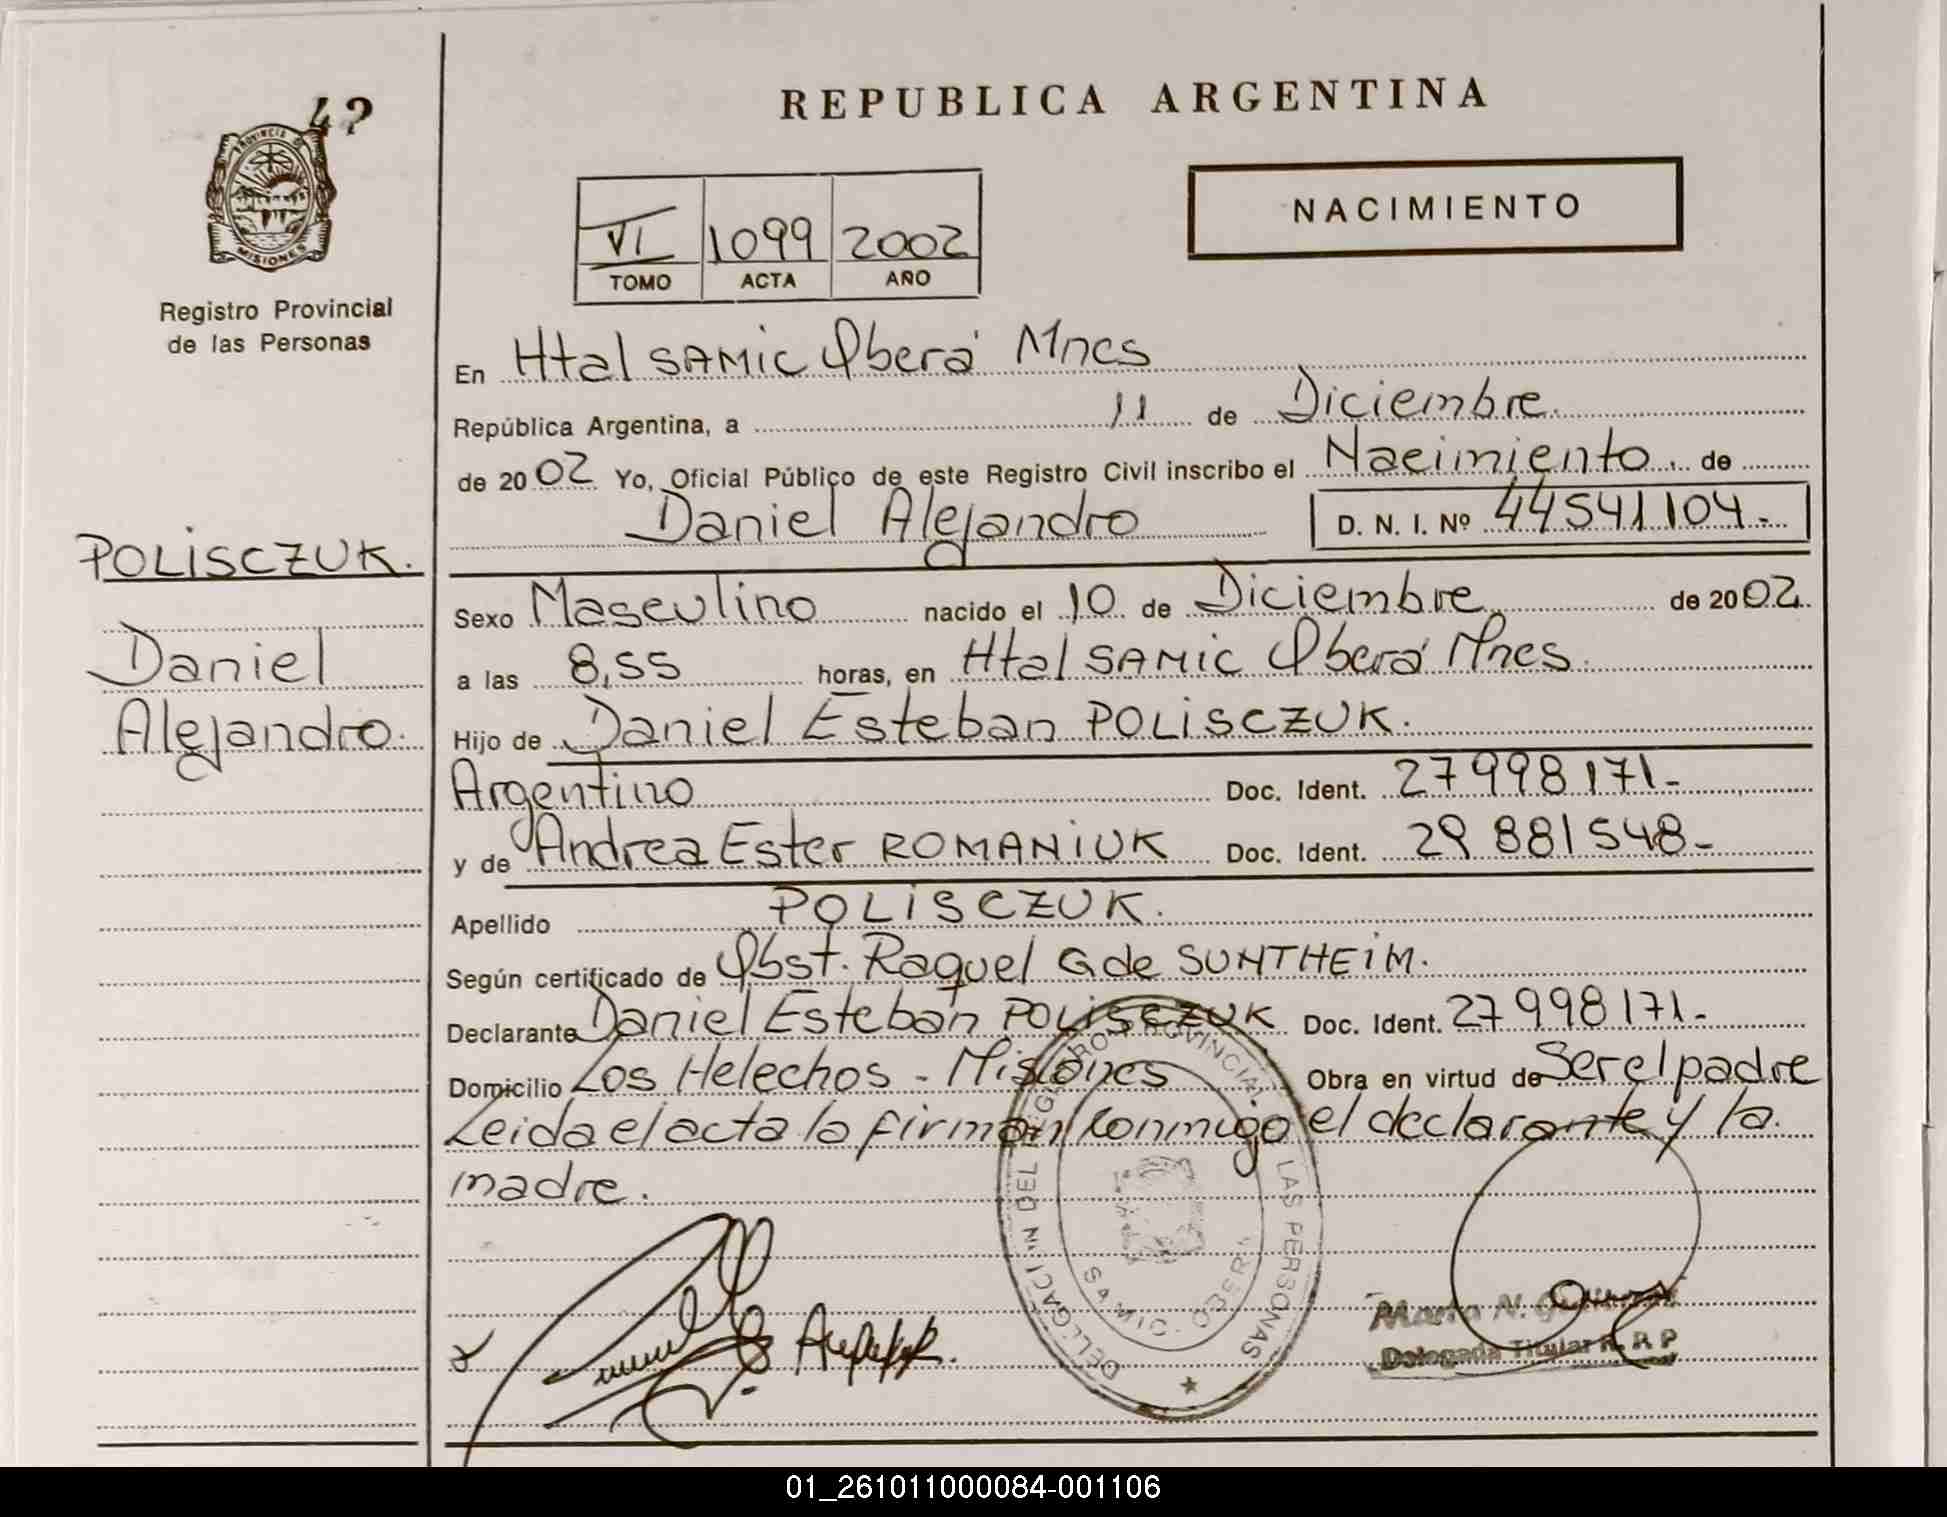 42
REPUBLICA ARGENTINA
PROVINCIA DE
MISIONES
Registro Provincial
de las Personas
NACIMIENTO
VI 1099 2002
TOMO ACTA AÑO
En Htal SAMIC Oberá Mnes
República Argentina, a 11 de Diciembre
de 2002 Yo, Oficial Público de este Registro Civil inscribo el Nacimiento de
Daniel Alejandro D. N. I. Nº 44541104.-
POLISCZUK.
Daniel
Alejandro.
Sexo Masculino nacido el 10 de Diciembre de 2002.
a las 8,55 horas, en Htal SAMIC Oberá Mnes.
Hijo de Daniel Esteban POLISCZUK.
Argentino Doc. Ident. 27998171-
y de Andrea Ester ROMANIUK Doc. Ident. 29 881548-
Apellido POLISCZUK.
Según certificado de Obst. Raquel G de SUNTHEIM.
Declarante Daniel Esteban POLISCZUK Doc. Ident. 27998171-
Domicilio Los Helechos - Misiones Obra en virtud de Ser el padre
Leida el acta la firman conmigo el declarante y la
madre.
REGISTRO PROVINCIAL DE LAS PERSONAS
SAMIC - OBERA
Marta N.
Delegada Titular R. P. P
01_261011000084-001106